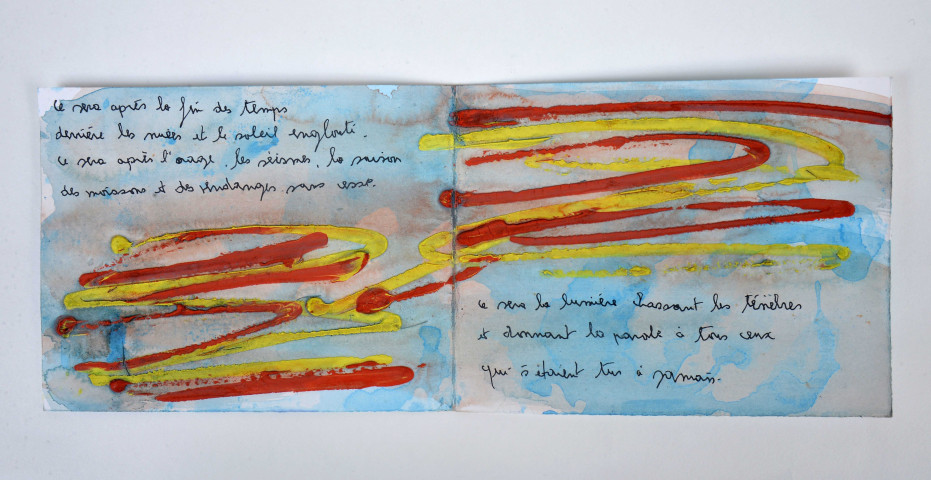 Ce sera après la fin des temps
derrière les nuées et le soleil englouti.
Ce sera après l'orage, les séismes, la saison
des moissons et des vendanges sans cesse.
Ce sera la lumière chassant les ténèbres
et donnant la parole à tous ceux
qui s'étaient tus à jamais.